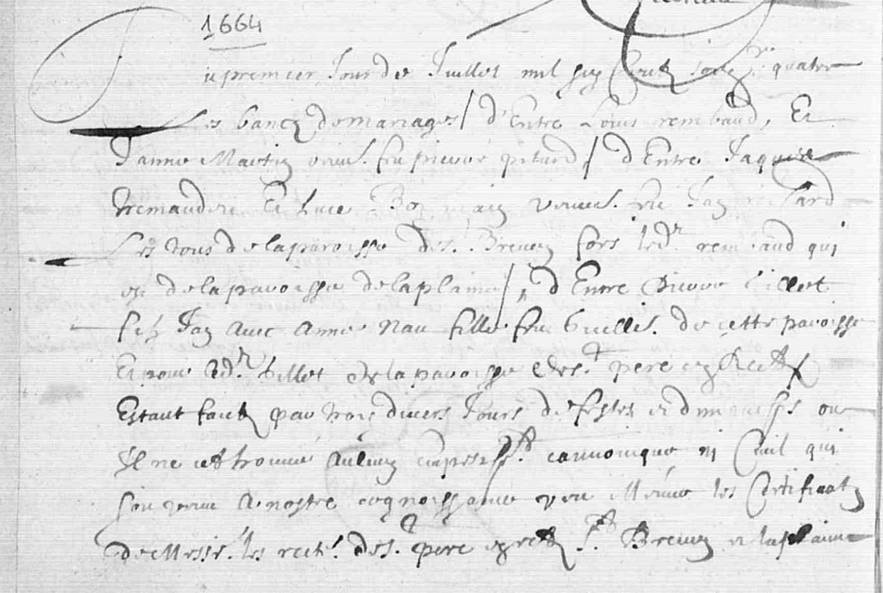 1664
u premier Jour de Juillet mil six cent soixe quatre
Les bancz de mariages / d'Entre Louis rembaud, Et
Janne Martin veuve feu pierre pitard / d'Entre Jaques
Et Luce veuve feu Jan
Les tous de la paroisse de St Brevin fors led rembaud qui
est de la paroisse de la plaine / d Entre Pierre Gillet
filz Jan avec Anne Nau fille feu de cette paroisse
Et pour led Gillet de la paroisse de St pere
Estant faictz par trois divers Jours de festes et dimenches ou
Il ne cest trouvé aulcun empesst cannonique ni Civil qui
soit venu a nostre cognoissance veu Mesme les Certificatz
de Messrs les rectrs de St pere en retz St Brevin et la plaine